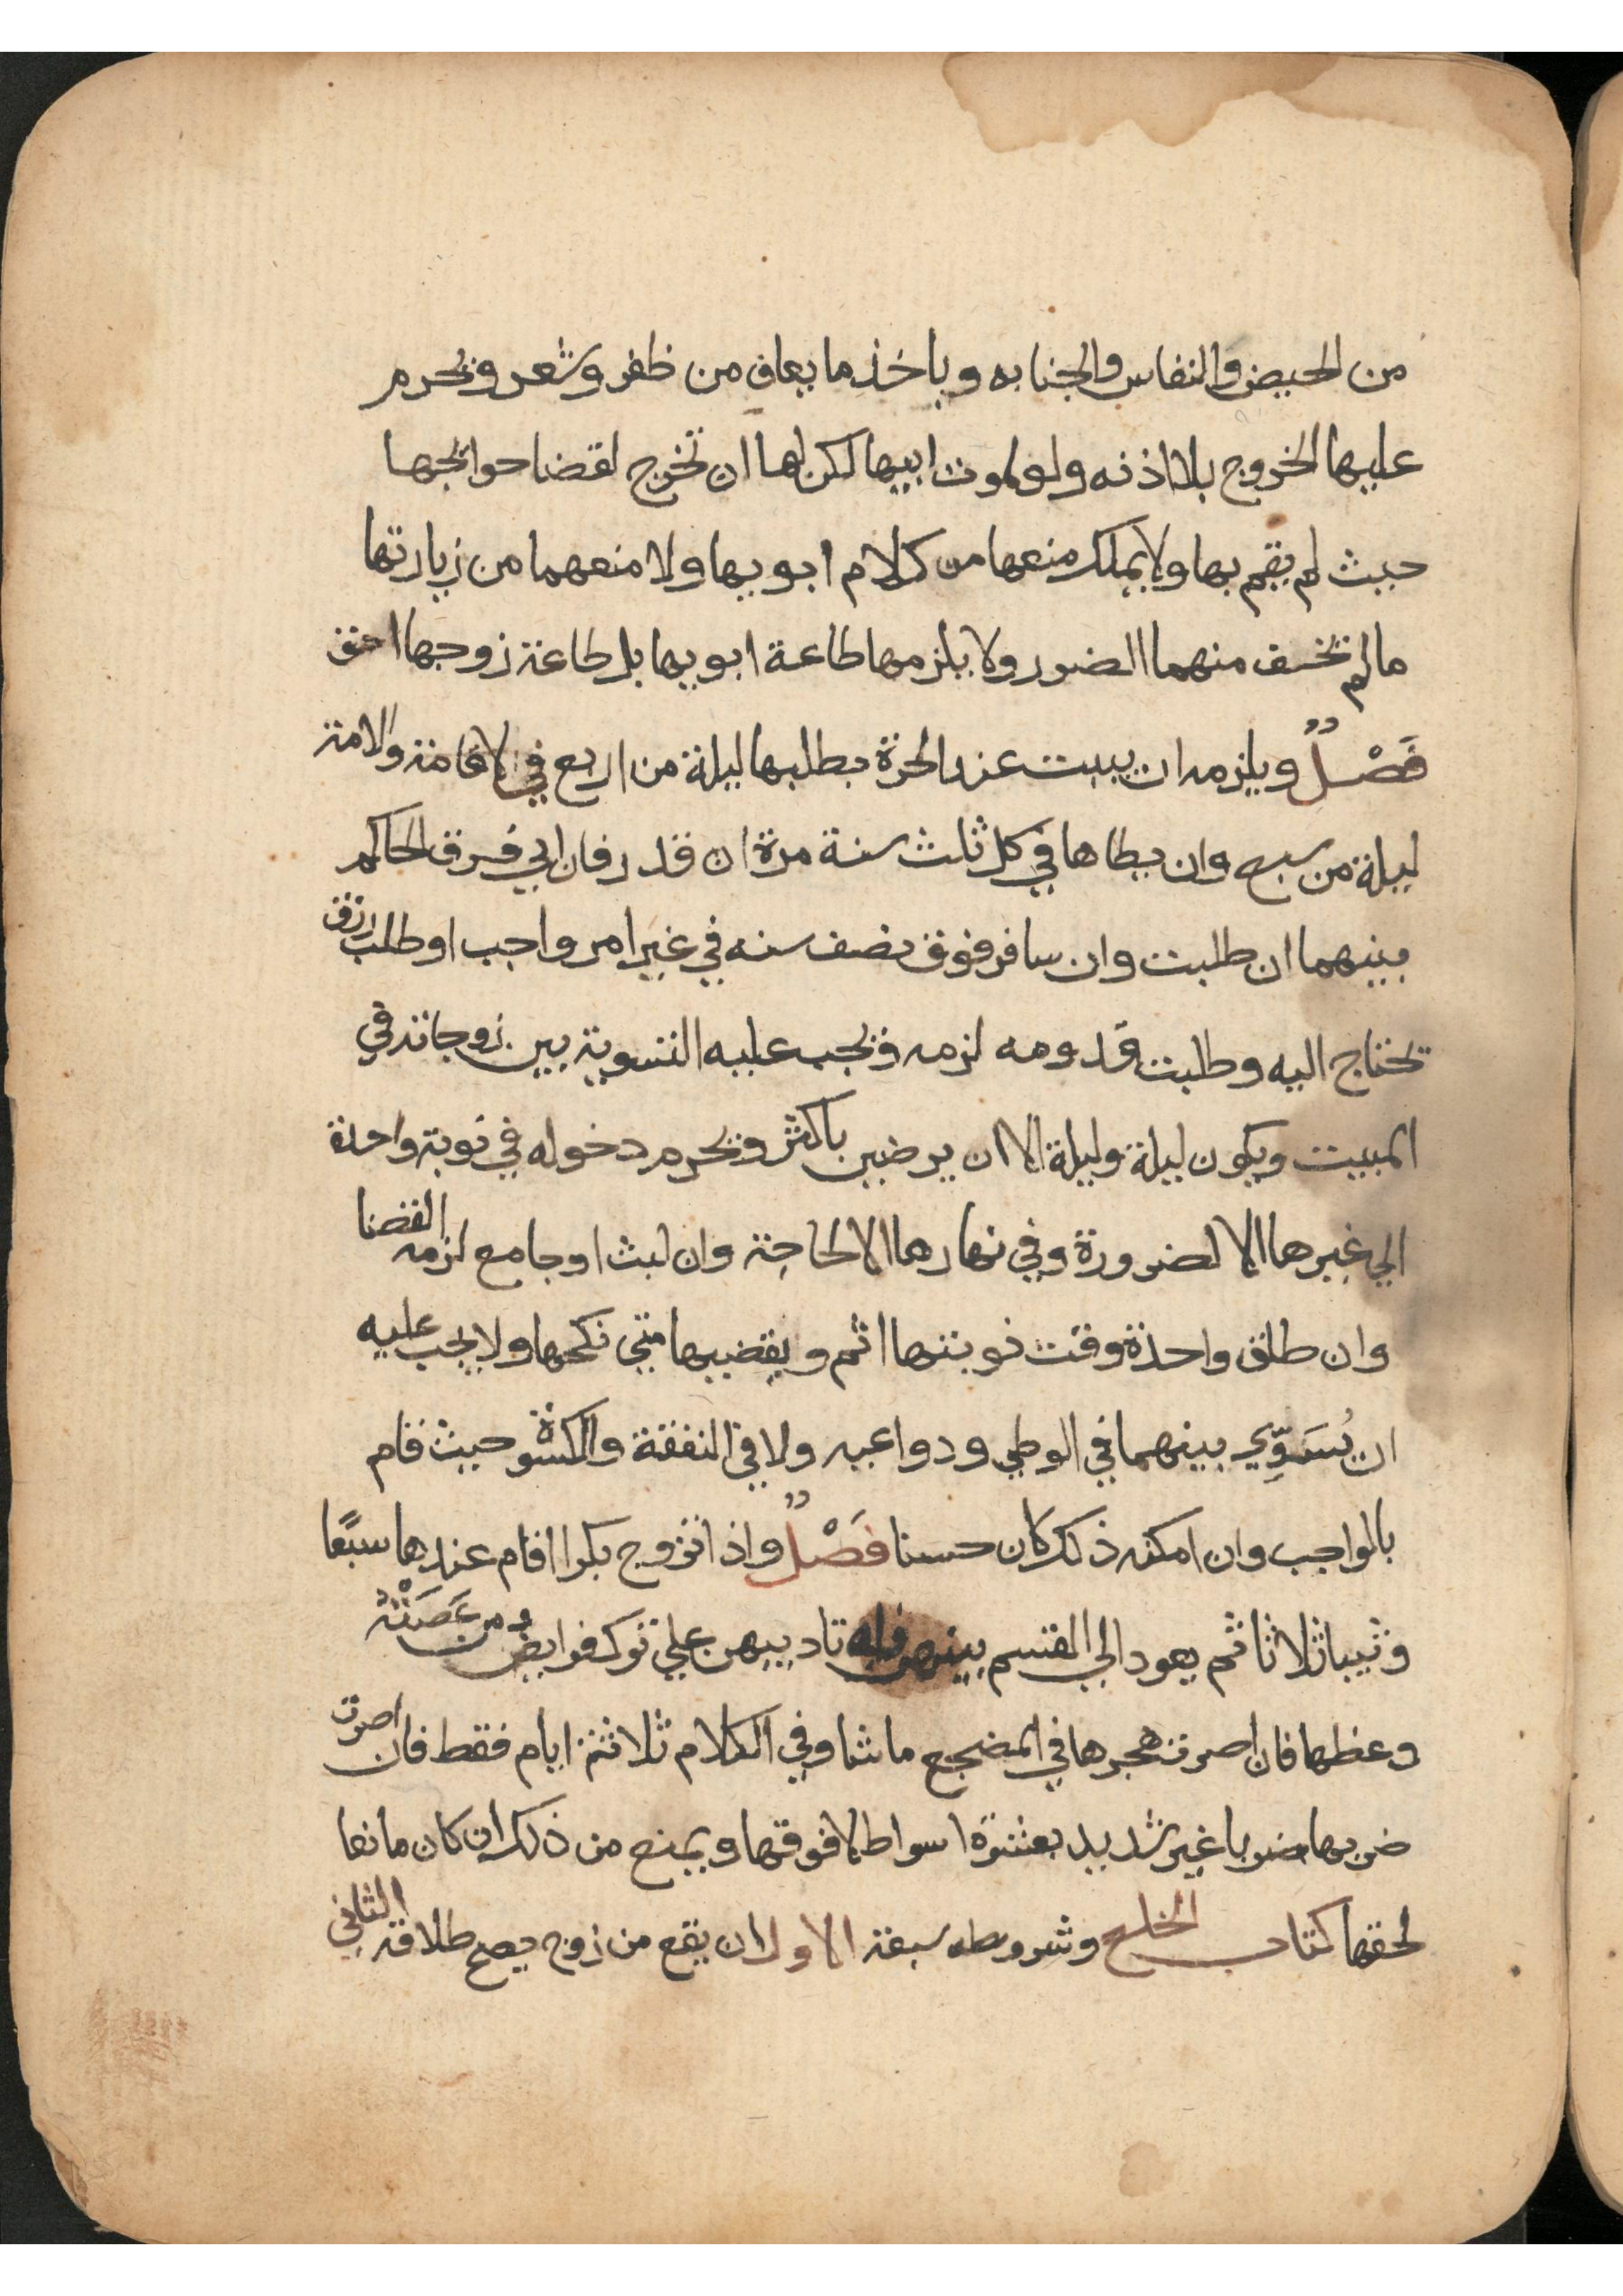 من الحيض والنفاس والجنابه وياخذ ما يعاف من ظفر وشعر ويحرم
عليها الخروج بلا اذنه ولو لموت ابيها لكن لها ان تخرج لقضا حوائجها
حيث لم يقم بها ولا يملك منعها من كلام ابويها ولا منعهما من زيارتها
مالم يخف منهما الضرر ولا يلزمها طاعة ابويها بل طاعة زوجها احق
فَصْلٌ ويلزمه ان يبيت عند الحرة بطلبها ليلة من اربع في الاقامة والامة
ليلة من سبع وان يطاها في كل ثلث سنة مرة ان قدر فان ابي فرق الحاكم
بينهما ان طلبت وان سافر فوق نصف سنه في غير امر واجب او طلب رزق
تحتاج اليه وطلبت قدومه لزمه ويجب عليه التسوية بين زوجاته في
المبيت ويكون ليلة وليلة الا ان يرضين باكثر ويحرم دخوله في نوبة واحدة
الي غيرها الا لضرورة وفي نهارها الا لحاجة وان لبث او جامع لزمه القضا
وان طلق واحدة وقت نوبتها اثم ويقضيها متي نكحها ولا يجب عليه
ان يُسَوِّي بينهما في الوطي ودواعيه ولا في النفقة والكسوة حيث قام
بالواجب وان امكنه ذلك كان حسنا فَصْلٌ واذا تزوج بكرا اقام عندها سبعًا
وثيبا ثلاثا ثم يعود الي القسم بينهن وله تاديبهن علي ترك فرايض ومن عَصَتْهُ
وعظها فان اصرت هجرها في المضجع ما شا وفي الكلام ثلاثة ايام فقط فان اصرت
ضربها ضربا غير شديد بعشرة اسواط لا فوقها ويمنع من ذلك ان كان مانعا
لحقها كتاب الخلع وشروطه سبعة الاول ان يقع من زوج يصح طلاقه الثاني